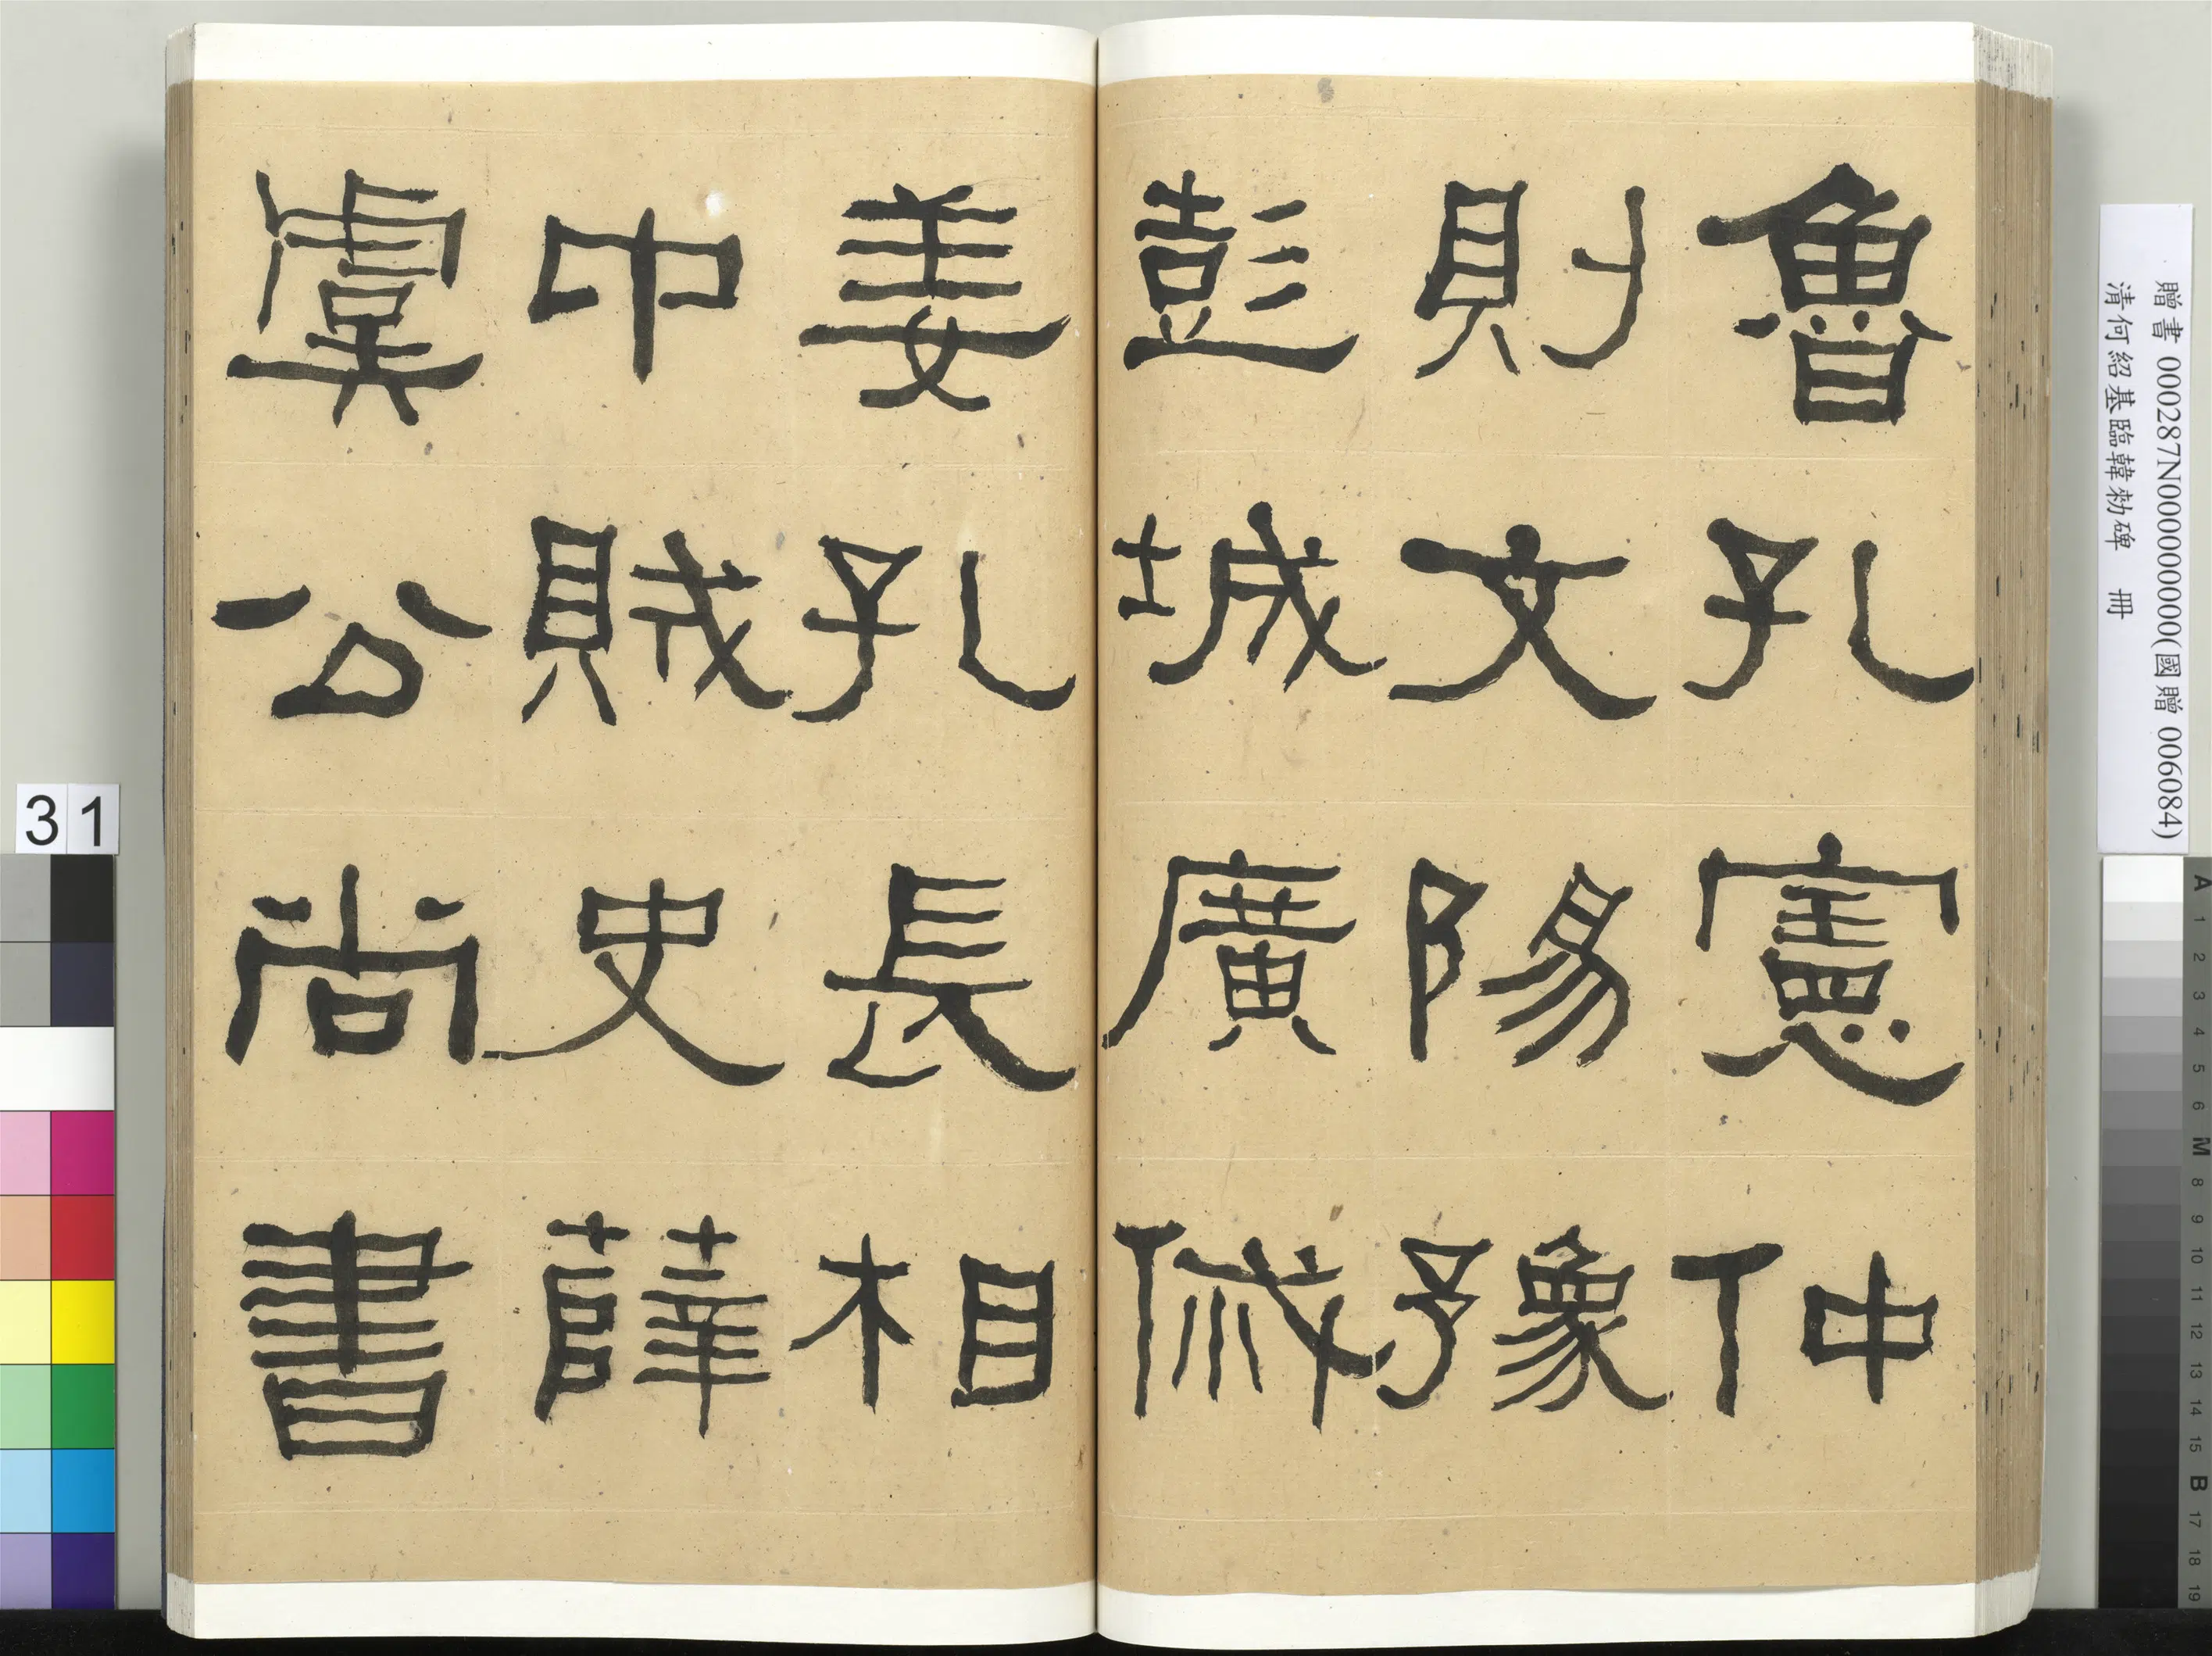 魯孔憲仲
則文陽豫
彭城廣傶
姜孔長相
中賊史薛
虞公尚書
贈書 000287N000000000(國贈 006084)
清何紹基臨韓勑碑 冊
31
A 1 2 3 4 5 6 M 8 9 10 11 12 13 14 15 B 17 18 19